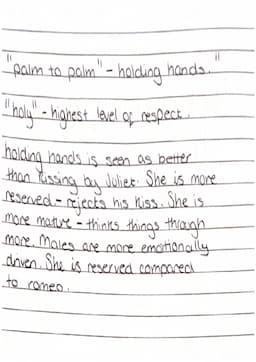 "palm to palm" - holding hands."
"holy" - highest level of respect.
holding hands is seen as better
than kissing by Juliet. She is more
reserved - rejects his kiss. She is
more mature - thinks things through
more. Males are more emotionally
driven. She is reserved compared
to romeo.